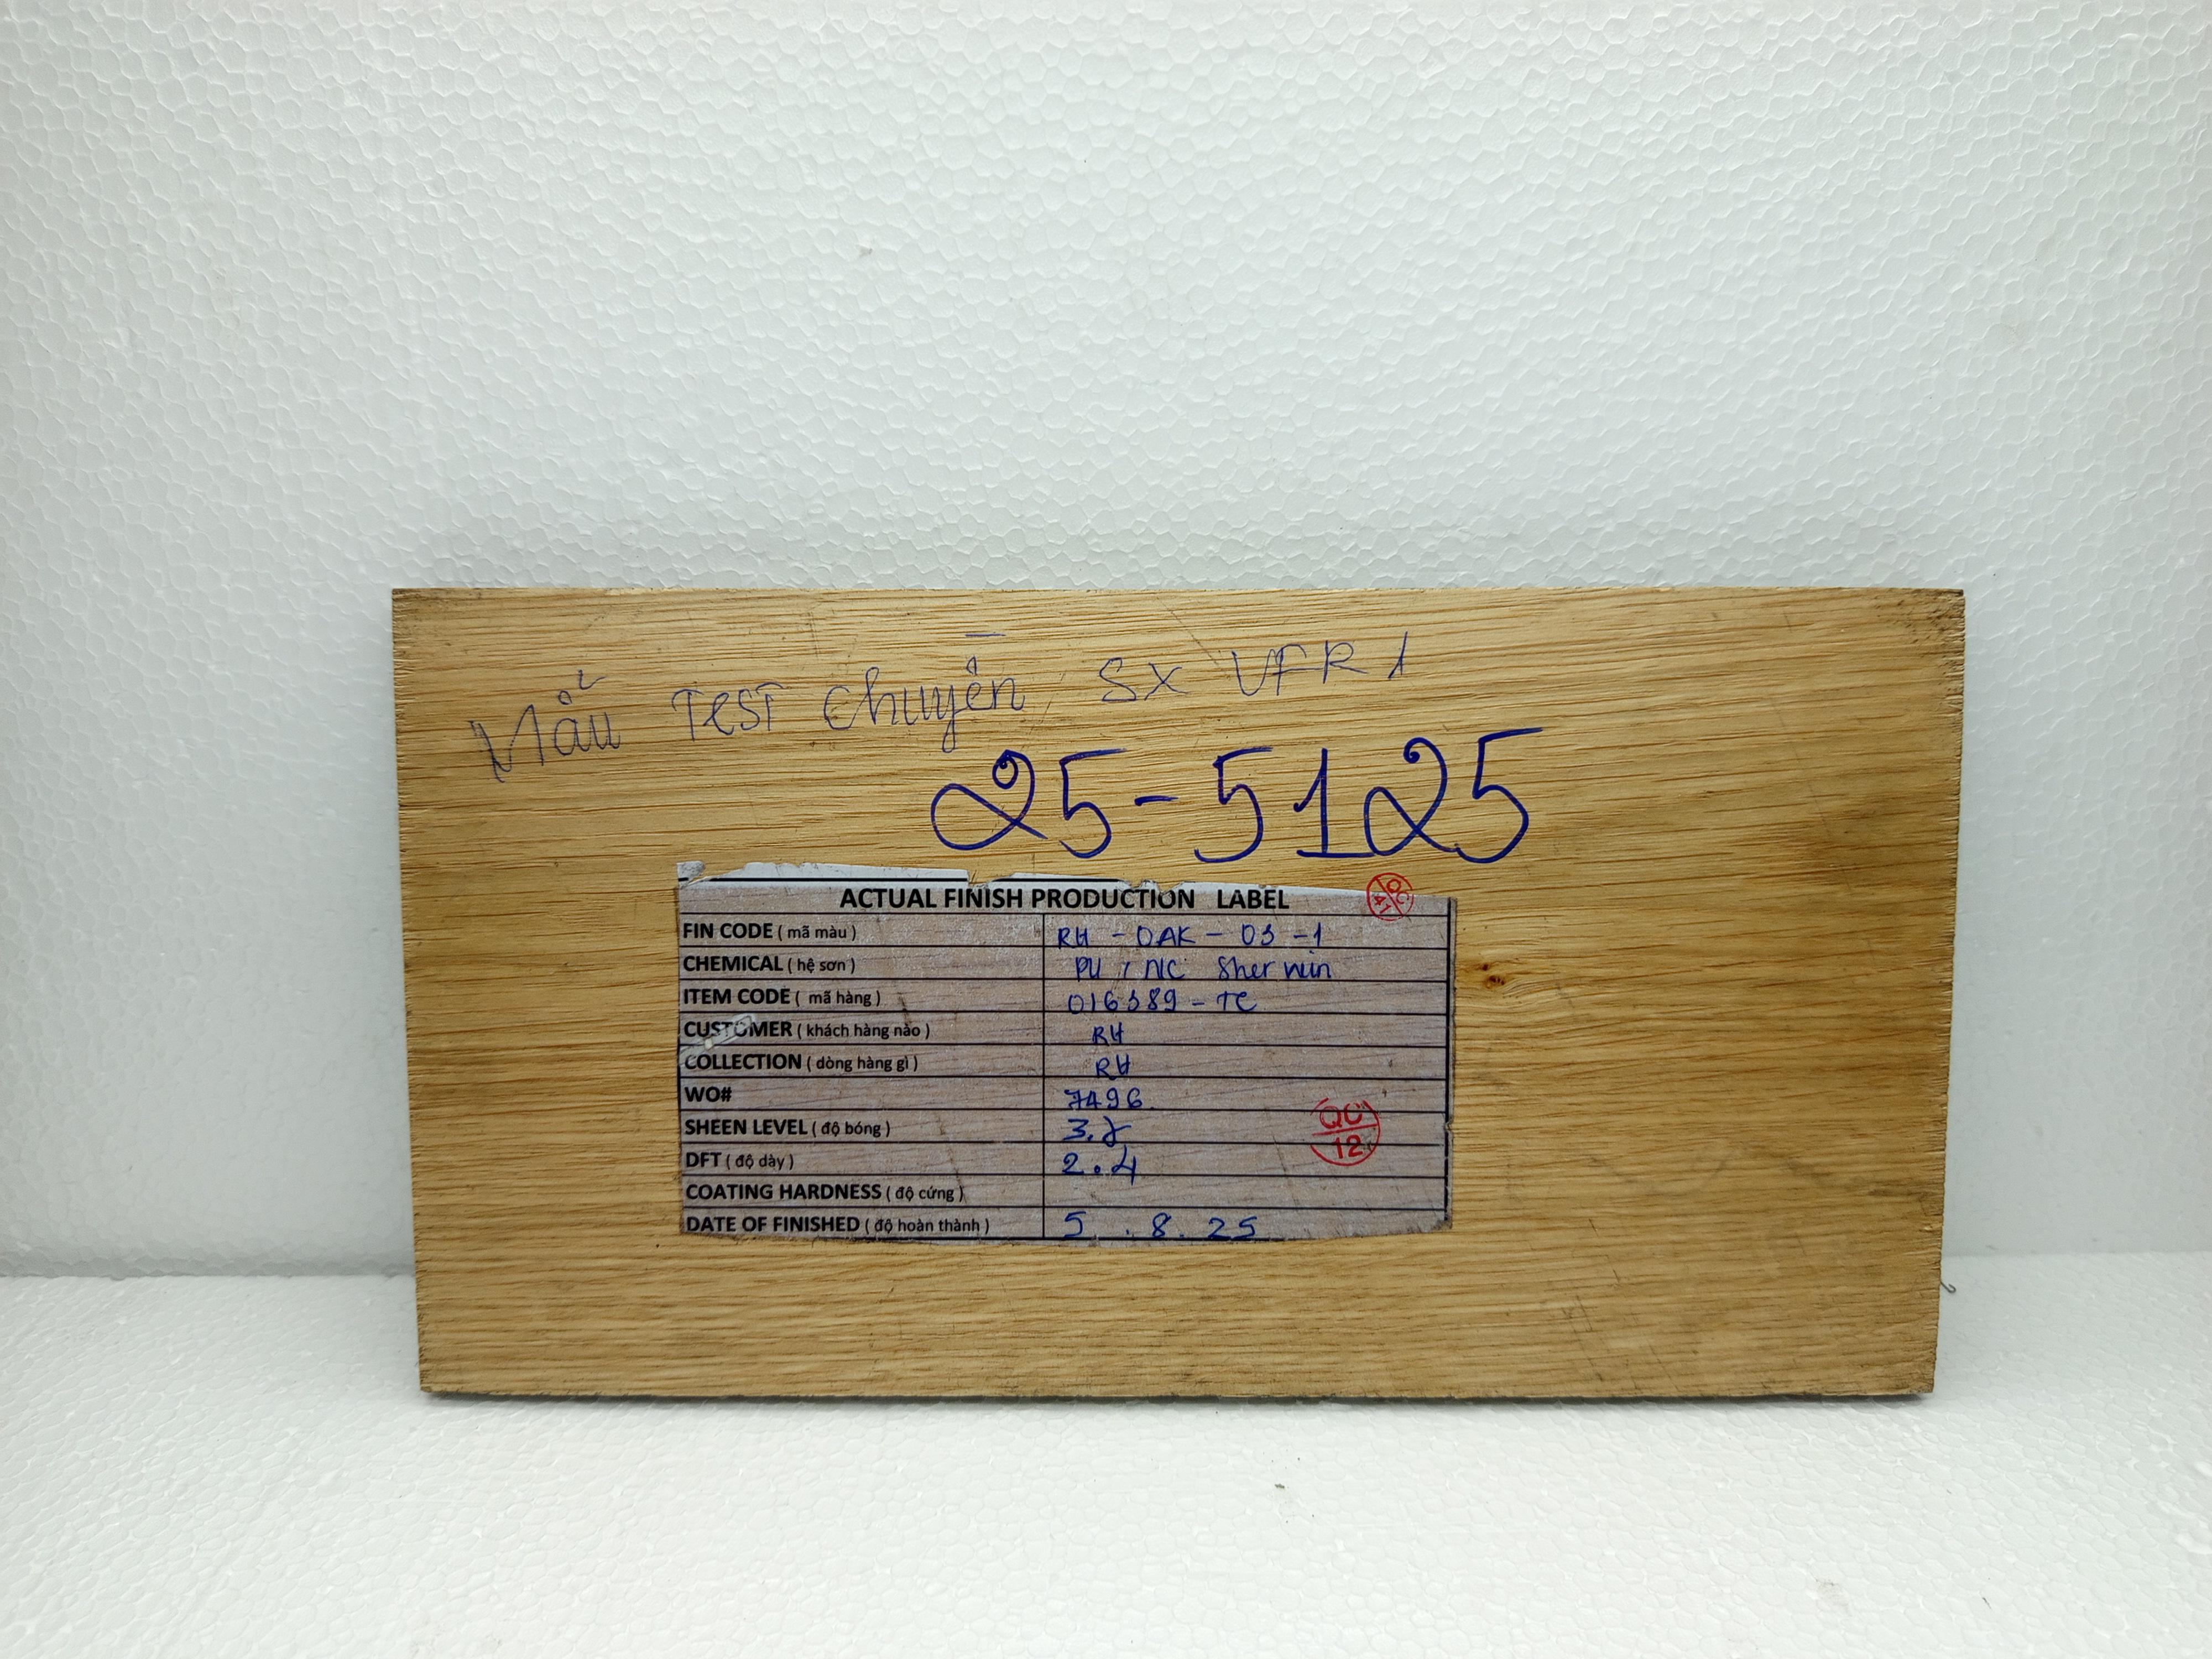 Mẫu Test chuyền SX VFR1
25-5125
ACTUAL FINISH PRODUCTION LABEL
QC 41
FIN CODE ( mã màu ) RH - OAK - 03 -1
CHEMICAL ( hệ sơn ) PU / NC Sherwin
ITEM CODE ( mã hàng ) 016389 - TC
CUSTOMER ( khách hàng nào ) RH
COLLECTION ( dòng hàng gì ) RH
WO# 7496
SHEEN LEVEL ( độ bóng )
QC 12
DFT ( độ dày ) 2.4
COATING HARDNESS ( độ cứng )
DATE OF FINISHED ( độ hoàn thành ) 5 . 8 . 25